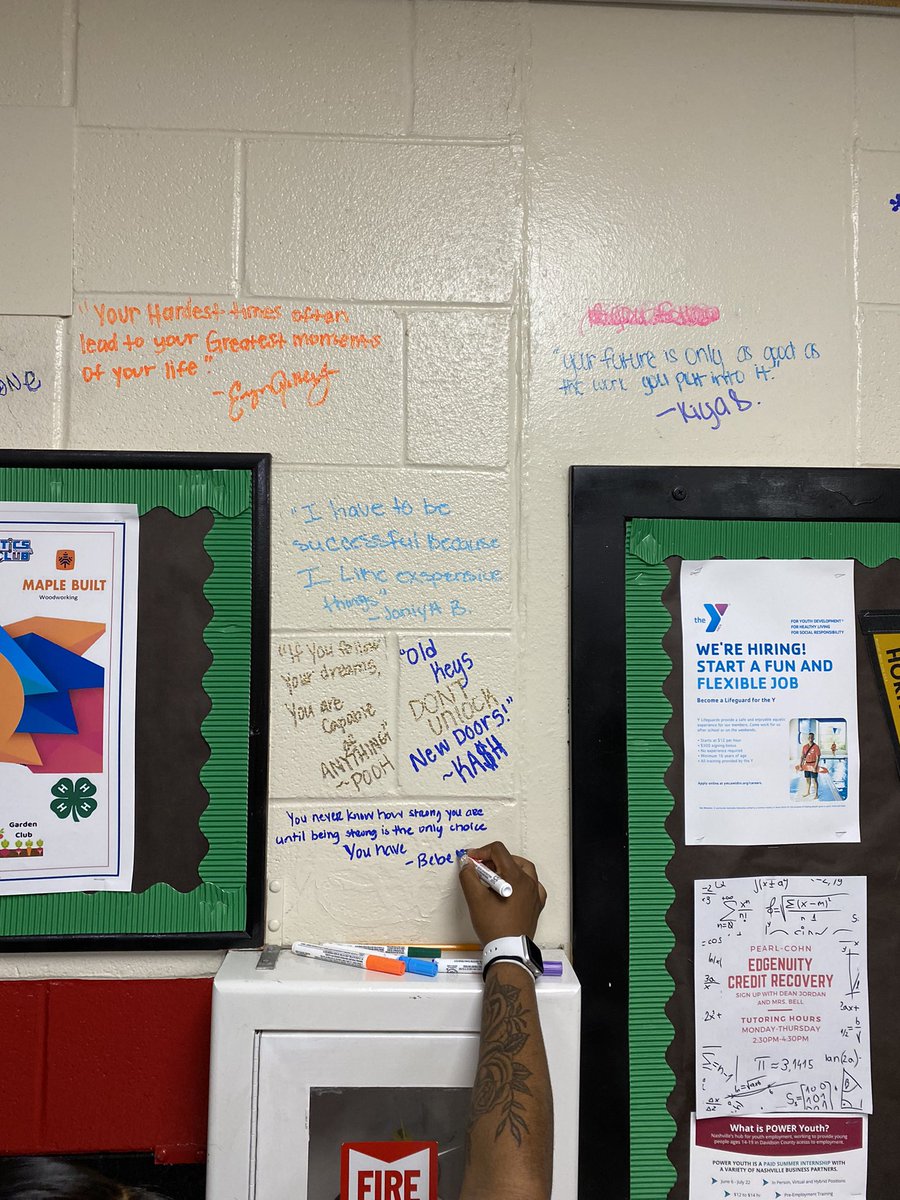 "Your Hardest times often
lead to your Greatest moments
of your life"
"your future is only as good as
the work you put into it."
~Kiya B.
ONE
"I have to be
successful Because
I Like exspensive
things"
-JaniyA B.
"If you follow
Your dreams,
You are
Capable
of
ANYTHING"
~POOH
"Old
Keys
DON'T
UNLOCK
New Doors!"
~KA$H
You never know how strong you are
until being strong is the only choice
You have
-Bebe
TICS
CLUB
MAPLE BUILT
Woodworking
H H
H H
Garden
Club
the Y
FOR YOUTH DEVELOPMENT
FOR HEALTHY LIVING
FOR SOCIAL RESPONSIBILITY
WE'RE HIRING!
START A FUN AND
FLEXIBLE JOB
Become a Lifeguard for the Y
Y Lifeguards provide a safe and enjoyable aquatic
experience for our members. Come work for us
after school or on the weekends.
• Starts at $12 per hour
• $300 signing bonus
• No experience required
• Minimum 16 years of age
• All training provided by the Y
HOR
PEARL-COHN
EDGENUITY
CREDIT RECOVERY
SIGN UP WITH DEAN JORDAN
AND MRS. BELL
TUTORING HOURS
MONDAY-THURSDAY
2:30PM-4:30PM
π ≈ 3,1415
What is POWER Youth?
Nashville's hub for youth employment, working to provide young
people ages 14-19 in Davidson County access to employment.
POWER YOUTH IS A PAID SUMMER INTERNSHIP WITH
A VARIETY OF NASHVILLE BUSINESS PARTNERS.
June 6 - July 22
In Person, Virtual and Hybrid Positions
$12 to $14 hr
Pre-Employment Training
FIRE